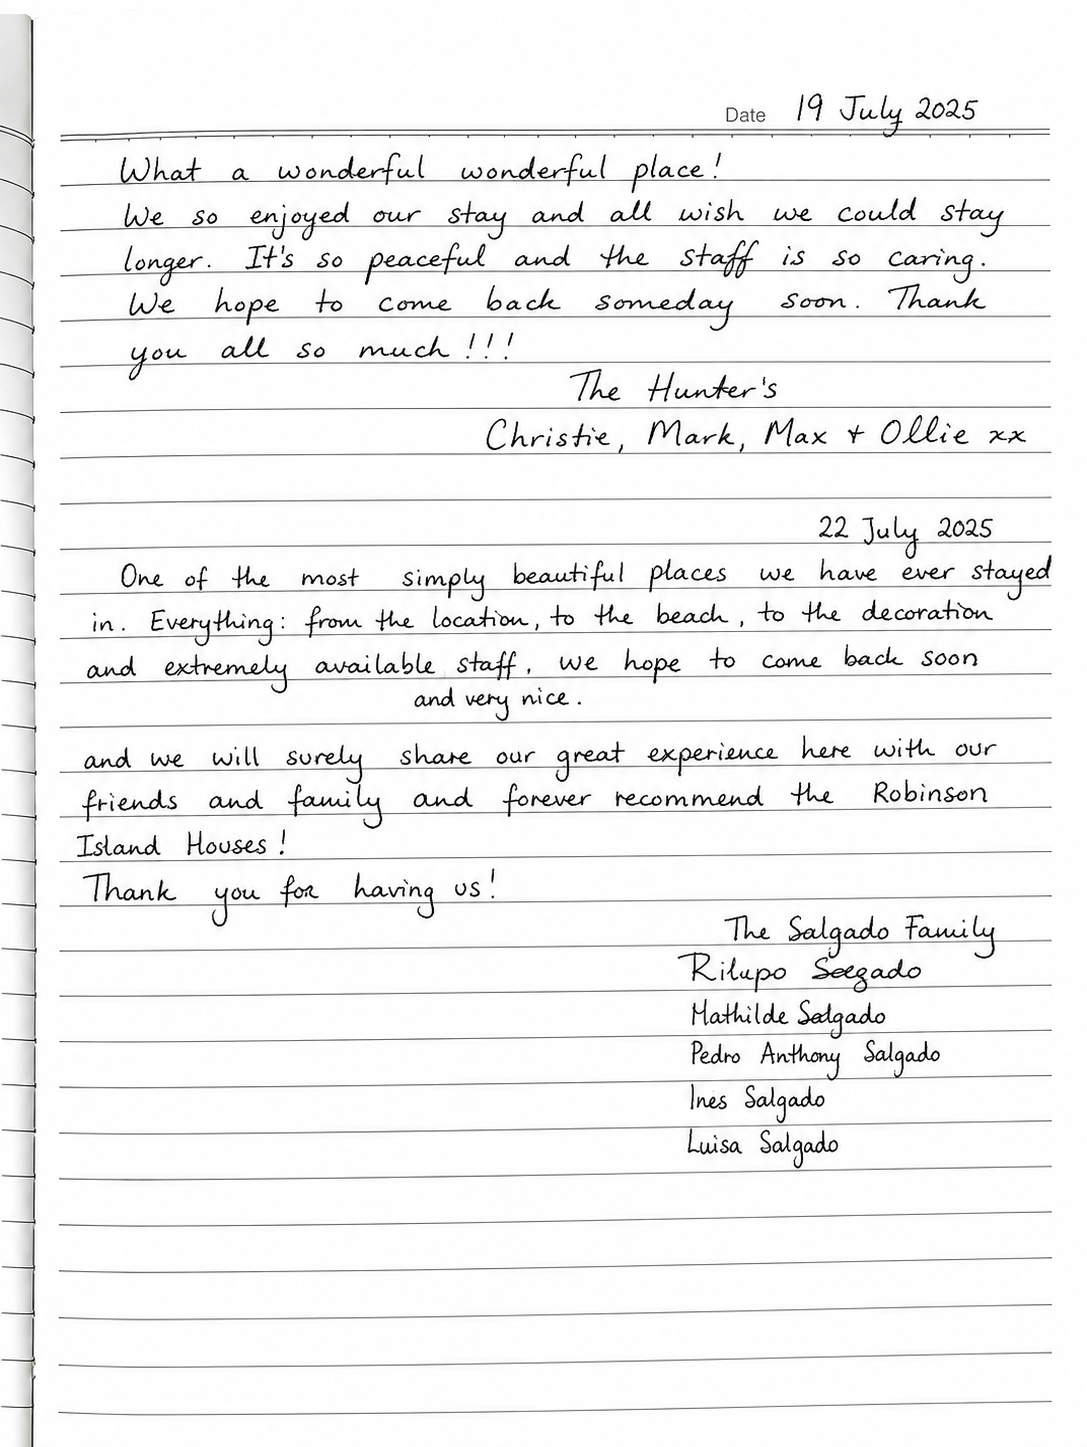 Date 19 July 2025
What a wonderful wonderful place!
We so enjoyed our stay and all wish we could stay
longer. It's so peaceful and the staff is so caring.
We hope to come back someday soon. Thank
you all so much!!!
The Hunter's
Christie, Mark, Max + Ollie xx
22 July 2025
One of the most simply beautiful places we have ever stayed
in. Everything: from the location, to the beach, to the decoration
and extremely available staff. We hope to come back soon
and very nice.
and we will surely share our great experience here with our
friends and family and forever recommend the Robinson
Island Houses!
Thank you for having us!
The Salgado Family
Rilupo Seegado
Mathilde Salgado
Pedro Anthony Salgado
Ines Salgado
Luisa Salgado